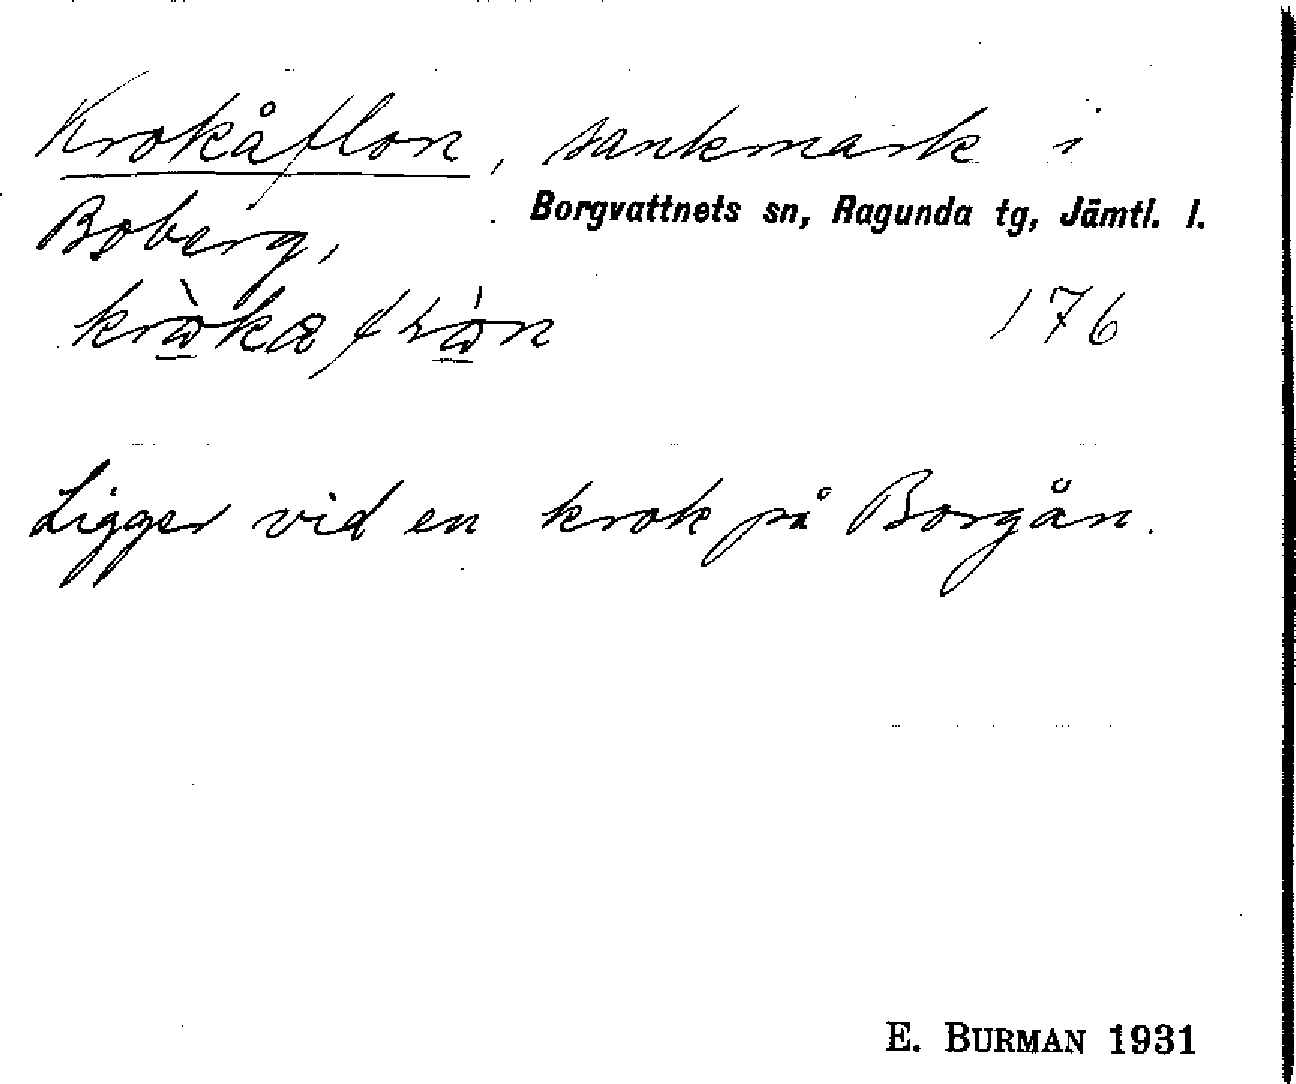 Krokåflon, sankmark i
Borgvattnets sn, Ragunda tg, Jämtl. l.
Boberg,
176
Ligger vid en krok på Borgån.
E. BURMAN 1931